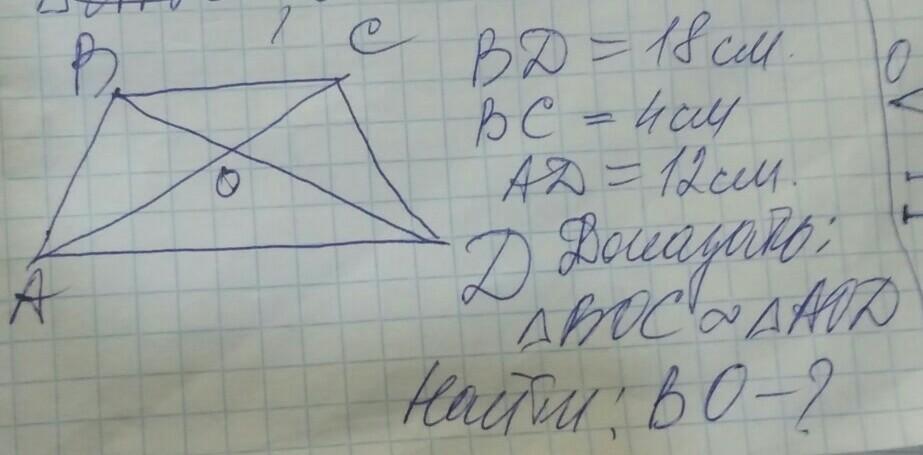 B
C
O
A
D
BD = 18 см.
BC = 4 см
AD = 12 см.
Доказать:
△BOC ∾ △AOD
Найти: BO - ?